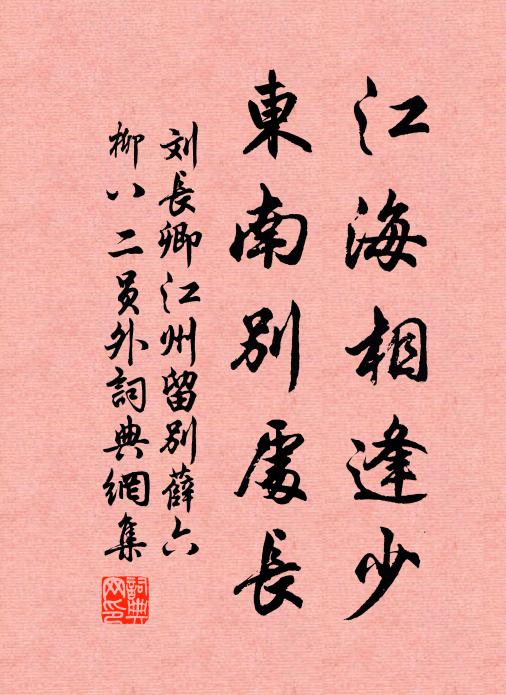 江海相逢少
東南別處長
刘長卿江州留別薛六
柳八二員外詞典網集
詞典网印